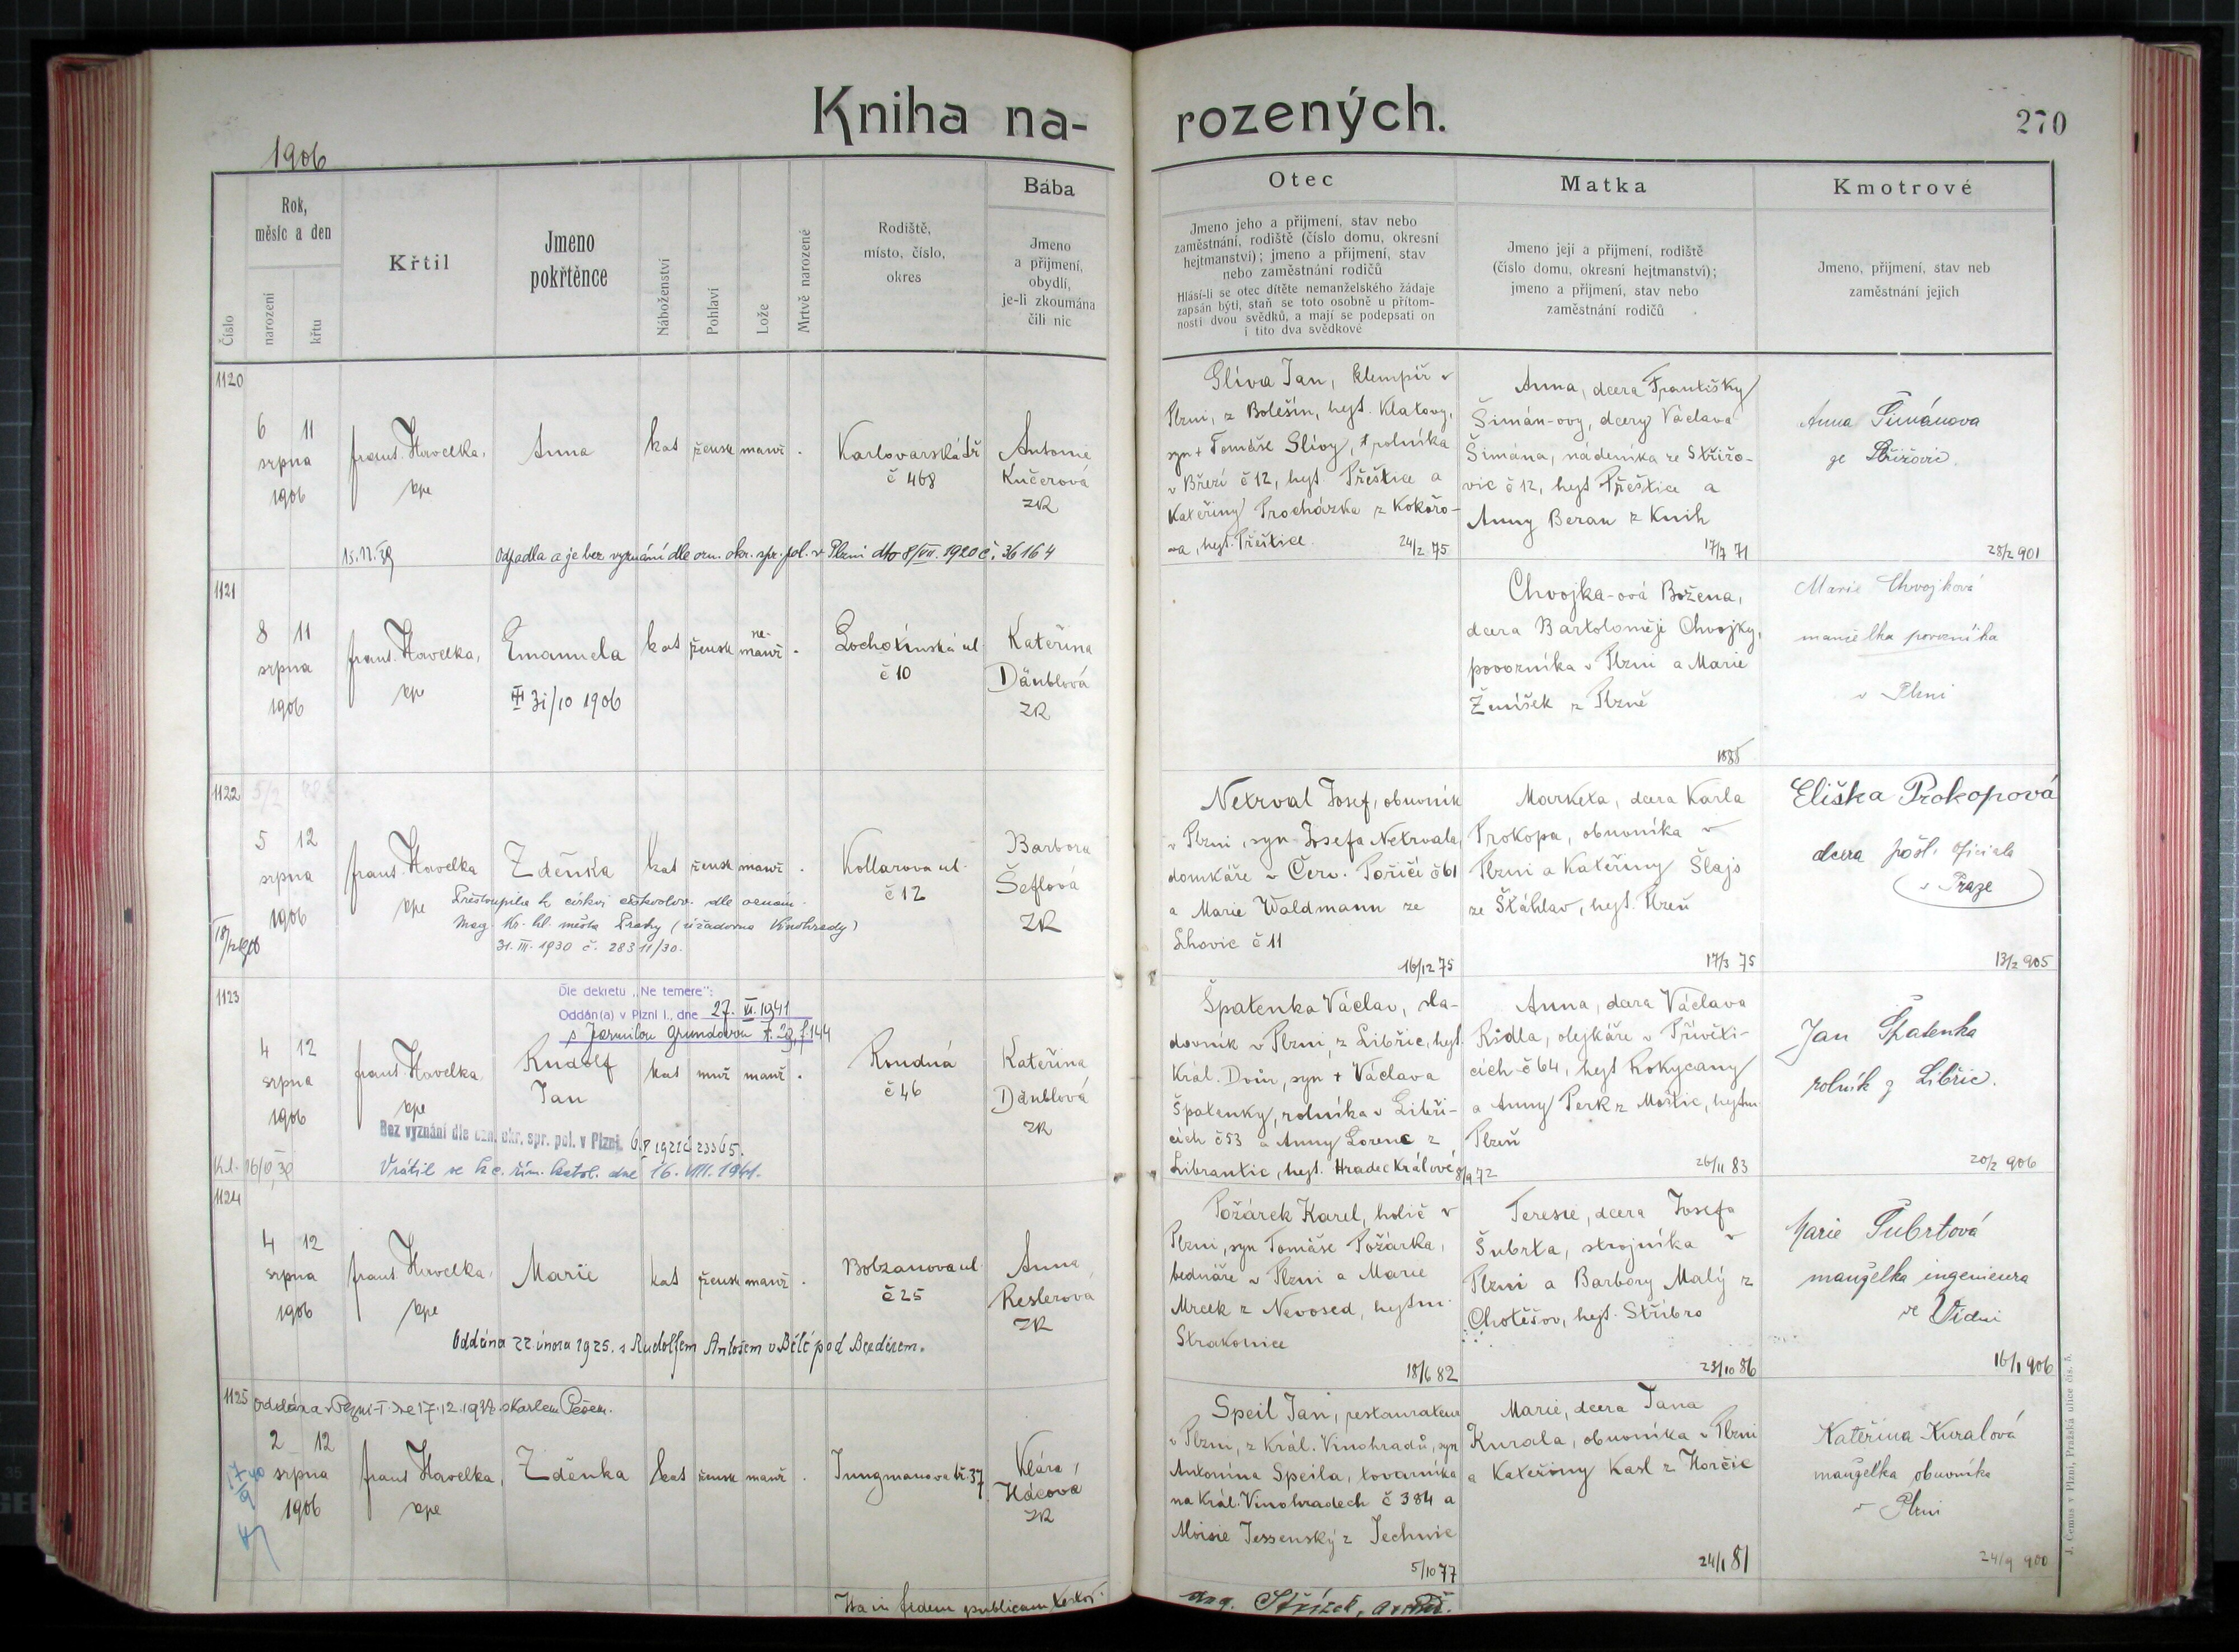 Kniha na-
rozených.
270
1906
Číslo
Rok,
měsíc a den
narození
křtu
Křtil
Jmeno
pokřtěnce
Náboženství
Pohlaví
Lože
Mrtvě narozené
Rodiště,
místo, číslo,
okres
Bába
Jmeno
a přijmení,
obydlí,
je-li zkoumána
čili nic
Otec
Jmeno jeho a přijmení, stav nebo
zaměstnání, rodiště (číslo domu, okresní
hejtmanství); jmeno a přijmení, stav
nebo zaměstnání rodičů
Hlásí-li se otec dítěte nemanželského žádaje
zapsán býti, staň se toto osobně u přítom-
nosti dvou svědků, a mají se podepsati on
i tito dva svědkové
Matka
Jmeno její a přijmení, rodiště
(číslo domu, okresní hejtmanství);
jmeno a přijmení, stav nebo
zaměstnání rodičů
Kmotrové
Jmeno, přijmení, stav neb
zaměstnání jejich
1120
6 11
srpna
1906
frant. Havelka,
kpe
Anna
kat
žensk
manž
.
Karlovarská tř
č 468
Antonie
Kučerová
ZR
Slíva Jan, klempíř v
Plzni, z Bolešin, hejt. Klatovy,
syn + Tomáše Slívy, rolníka
v Březí č 12, hejt Přeštice a
Kateřiny Procházka z Kokořo-
va, hejt. Přeštice.
24/2 75
Anna, dcera Františky
Šimán-ovy, dcery Václava
Šimána, nádeníka ze Střižo-
vic č 12, hejt Přeštice a
Anny Beran z Knih
17/7 71
Anna Šimánova
ze Střižovic
28/2 901
Odpadla a je bez vyznání dle ozn. okr. spr. pol. v Plzni dto 8/VII. 1920 č. 36164
1121
8 11
srpna
1906
frant. Havelka,
kpe
Emanuela
31/10 1906
kat
žensk
ne-
manž
.
Lochotínská ul.
č 10
Kateřina
Däublová
ZR
Chvojka-ová Božena,
dcera Bartoloměje Chvojky,
povozníka v Plzni a Marie
Žmíšek z Plzně
1885
Marie Chvojková
manželka povozníka
v Plzni
1122
5 12
srpna
1906
frant. Havelka
kpe
Zdeňka
kat
žensk
manž
.
Kollarova ul.
č 12
Barbora
Šeflová
ZR
Přestoupila k církvi českoslov. dle oznám.
Mag. kr. hl. města Prahy (úřadovna Vinohrady)
31. III. 1930 č. 28311/30.
Netrval Josef, obuvník
v Plzni, syn Josefa Netrvala,
domkáře v Červ. Poříčí č 61
a Marie Waldmann ze
Lhovic č 11
16/12 75
Marketa, dcera Karla
Prokopa, obuvníka v
Plzni a Kateřiny Šlajs
ze Šťáhlav, hejt. Plzeň
17/3 75
Eliška Prokopová
dcera pošt. oficiala
v Praze
13/2 905
1123
Dle dekretu „Ne temere":
Oddán(a) v Plzni I., dne 27. VI. 1941
s Jarmilou Grundovou t. 29, f. 144
4 12
srpna
1906
frant. Havelka,
kpe
Rudolf
Jan
kat
muž
manž
.
Roudná
č 46
Kateřina
Däublová
ZR
Bez vyznání dle ozn. okr. spr. pol. v Plzni.
Vrátil se k c. řím. katol. dne 16. VIII. 1941.
Špatenka Václav, sla-
dovník v Plzni, z Libřic, hejt.
Král. Dvůr, syn + Václava
Špatenky, rolníka v Libři-
cích č 53 a Anny Lorenc z
Librantic, hejt. Hradec Králové
8/9 72
Anna, dcera Václava
Rídla, olejkáře v Přívěti-
cích č 64, hejt Rokycany
a Anny Perk z Moštic, hejtm.
Plzeň
26/11 83
Jan Špatenka
rolník z Libřic.
20/2 906
1124
4 12
srpna
1906
frant. Havelka,
kpe
Marie
kat
žensk
manž
.
Bolzanova ul.
č 25
Anna
Keslerová
ZR
Oddána 22. února 1925. s Rudolfem Antošem v Bělé pod Bezdězem.
Požárek Karel, holič v
Plzni, syn Tomáše Požárka,
bednáře v Plzni a Marie
Mrcek z Nevosed, hejtm.
Strakonice
18/6 82
Teresie, dcera Josefa
Šubrta, strojníka v
Plzni a Barbory Malý z
Chotěšov, hejt. Stříbro
23/10 86
Marie Šubrtová
manželka ingenieura
ve Vídni
16/1 906
1125
Oddána v Plzni-I. dne 17.12.1932 s Karlem Pešem.
2 12
srpna
1906
frant Havelka,
kpe
Zděnka
kat
žensk
manž
.
Jungmanova tř. 37
Klára
Hácová
ZR
Speil Jan, restaurateur
v Plzni, z Král. Vinohradů, syn
Antonína Speila, továrníka
na Král. Vinohradech č 384 a
Aloisie Jessenský z Jechnic
5/10 77
Marie, dcera Jana
Kurala, obuvníka v Plzni
a Kateřiny Kasl z Horčic
24/1 81
Kateřina Kuralová
manželka obuvníka
v Plzni
24/9 900
Ita in fidem publicam
J. Cemus v Plzni, Pražská ulice čís. 5.